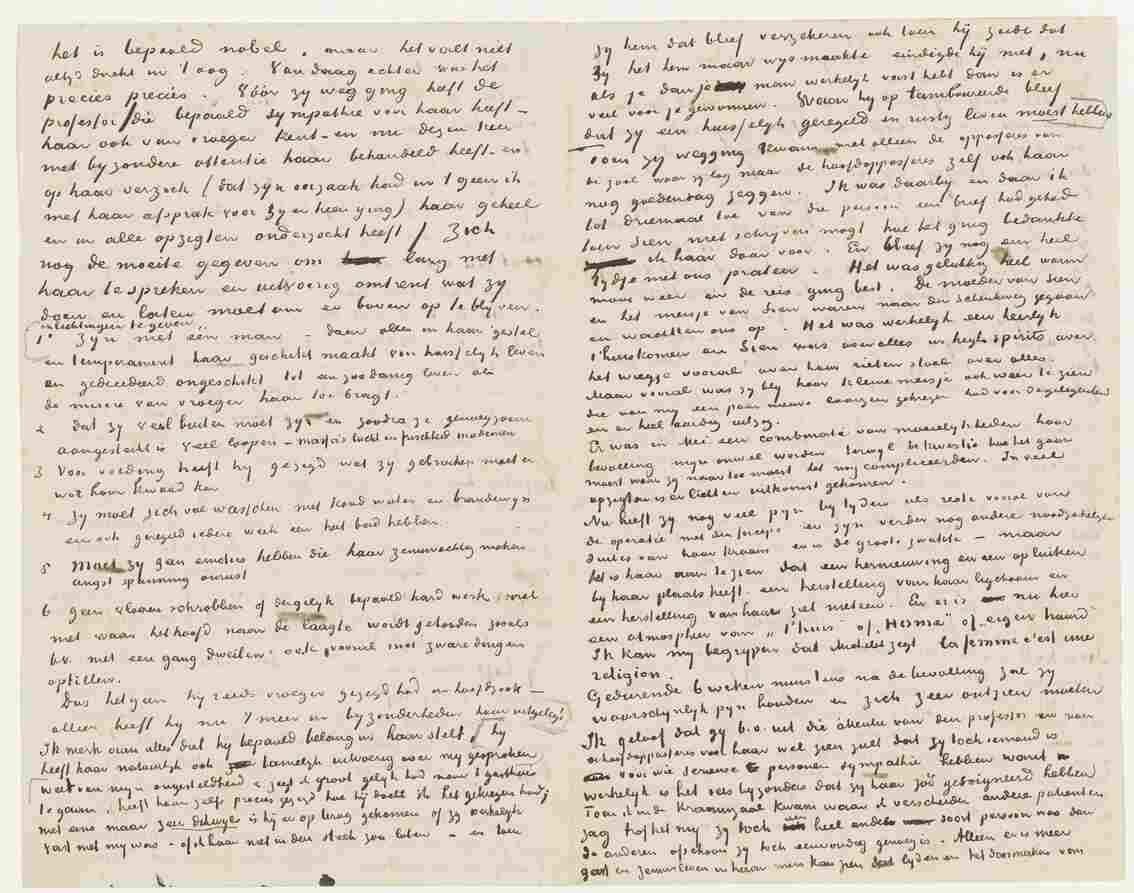 het is bepaald nobel, maar het valt niet
altijd direct in 't oog. Vandaag echter was het
precies precies. Vóór zy weg ging heeft de
professor, die bepaald sympathie voor haar heeft –
haar ook van vroeger kent – en nu dezen keer
met byzondere attentie haar behandeld heeft – en
op haar verzoek (dat zyn oorzaak had in 't geen ik
met haar afsprak voor zy er heen ging) haar geheel
en in alle opzigten onderzocht heeft / Zich
nog de moeite gegeven om lang met
haar te spreken en uitvoerig omtrent wat zy
doen en laten moet om er boven op te blyven
inlichtingen te geven.
1° Zyn met een man – daar alles in haar gestel
en temperament haar geschikt maakt voor huisselyk leven
en gedecideerd ongeschikt tot een zoodanig leven als
de misere van vroeger haar toe bragt.
2 Dat zy veel buiten moet zyn en zoodra ze genoegzaam
aangesterkt is veel loopen – lucht en frischheid
3 Voor voeding heeft hy gezegd wat zy gebruiken moet en
wat haar kwaad kan
4 Zy moet zich vol wasschen met koud water en brandewyn
en ook geregeld iedere week een heet bad hebben.
5 Moet zy geen emoties hebben die haar zenuwachtig maken
angst spanning onrust
6 geen vloeren schrobben of dergelyk bepaald hard werk, vooral
niet waar het hoofd naar de laagte wordt gehouden zooals
b.v. met een gang dweilen. ook vooral niet zware dingen
optillen.
Dus hetgeen hy reeds vroeger gezegd had in hoofdzaak –
alleen heeft hy nu 't meer in byzonderheden haar uitgelegd
Ik merk aan alles dat hy bepaald belang in haar stelt, hy
heeft haar natuurlyk ook tamelyk uitvoerig over my gesproken
Wist van myn ongesteldheid & zegt ik groot gelyk had naar 't gasthuis
te gaan, heeft haar zelfs precies gezegd hoe hy dacht ik het gekregen had
met ons maar zeer dikwyls is hy er op terug gekomen of zy werkelyk
vast met my was – of ik haar niet in den steek zou laten – en toen
zy hem dat bleef verzekeren ook toen hy zeide dat
zy het hem maar wys maakte eindigde hy met, nu
als je dan je man werkelyk vast hebt dan is er
veel voor je gewonnen. Waar hy op tamboureerde bleef
dat zy een huisselyk geregeld en rustig leven moest hebben
Toen zy wegging kwam niet alleen de oppasseres van
de zaal waar zy lag maar de hoofdoppasseres zelf ook haar
nog goedendag zeggen. Ik was daarby en daar ik
tot driemaal toe van die persoon een brief had gehad
toen Sien niet schryven mogt hoe het ging bedankte
ik haar daar voor. En bleef zy nog een heel
tydje met ons praten. Het was gelukkig heel warm
mooi weer en de reis ging best. De moeder van Sien
en het meisje van Sien waren naar den Schenkweg gegaan
en wachtten ons op. Het was werkelyk een heerlyk
t'huiskomen en Sien was over alles in high spirits over
het wiegje vooral over haar rieten stoel over alles.
Maar vooral was zy bly haar kleine meisje ook weer te zien
die van my een paar nieuwe laarzen gekregen had voor de gelegenheid
en er heel aardig uitzag.
Er was in Mei een combinatie van moeielykheden haar
bevalling myn onwel worden terwyl de kwestie hoe het gaan
moest waar zy naar toe moest het nog compliceerden. In veel
opzigten is er licht en uitkomst gekomen.
Nu heeft zy nog veel pyn by tyden als reste vooral van
de operatie met den forceps en zyn verder nog andere noodzakelyke
suites van haar kraam en is de groote zwakte – maar
het is haar aan te zien dat een hernieuwing en een opluiken
by haar plaats heeft. een herstelling van haar lichaam en
een herstelling van haar ziel meteen. En er is nu hier
een atmospheer van „t'huis" of „Home" of „eigen haard"
Ik kan my begrypen dat Michelet zegt la femme c'est une
religion.
Gedurende 6 weken minstens na de bevalling zal zy
waarschynlyk pyn houden en zich zeer ontzien moeten
Ik geloof dat gy b.v. uit die attentie van den professor en van
de hoofdoppasseres voor haar wel zien zult dat zy toch iemand is
voor wie serieuse personen sympathie hebben want
werkelyk is het iets byzonders dat zy haar zóó gesoigneerd hebben
Toen ik in de Kraamzaal kwam waar ik verscheiden andere patienten
zag trof het my zy toch een heel ander soort persoon was dan
de anderen ofschoon zy toch eenvoudig genoeg is. Alleen er is meer
geest en zenuwleven in haar men kan zien lyden en het doormaken van